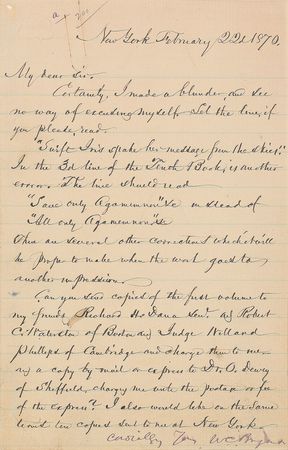 a 200
New York February 22d 1870.
My dear Sir.
Certainly, I made a blunder and see
no way of excusing myself. Let the line, if
you please, read.
"Swift Iris spake her message from the skies."
In the 3d line of the Tenth Book, is another
error. The line should read
"Save only Agamemnon" &c instead of
"All only Agamemnon" &c
There are several other corrections which it will
be proper to make when the work goes to
another impression.
Can you send copies of the first volume to
my friends Richard H. Dana Senr. and Robert
C. Waterston of Boston and Judge Willard
Phillips of Cambridge and charge them to me—
and a copy by mail or express to Dr. O. Dewey
of Sheffield, charging me with the postage or fee
of the express? I also would like on the same
terms ten copies sent to me at New York.
Cordially Yours W C Bryant